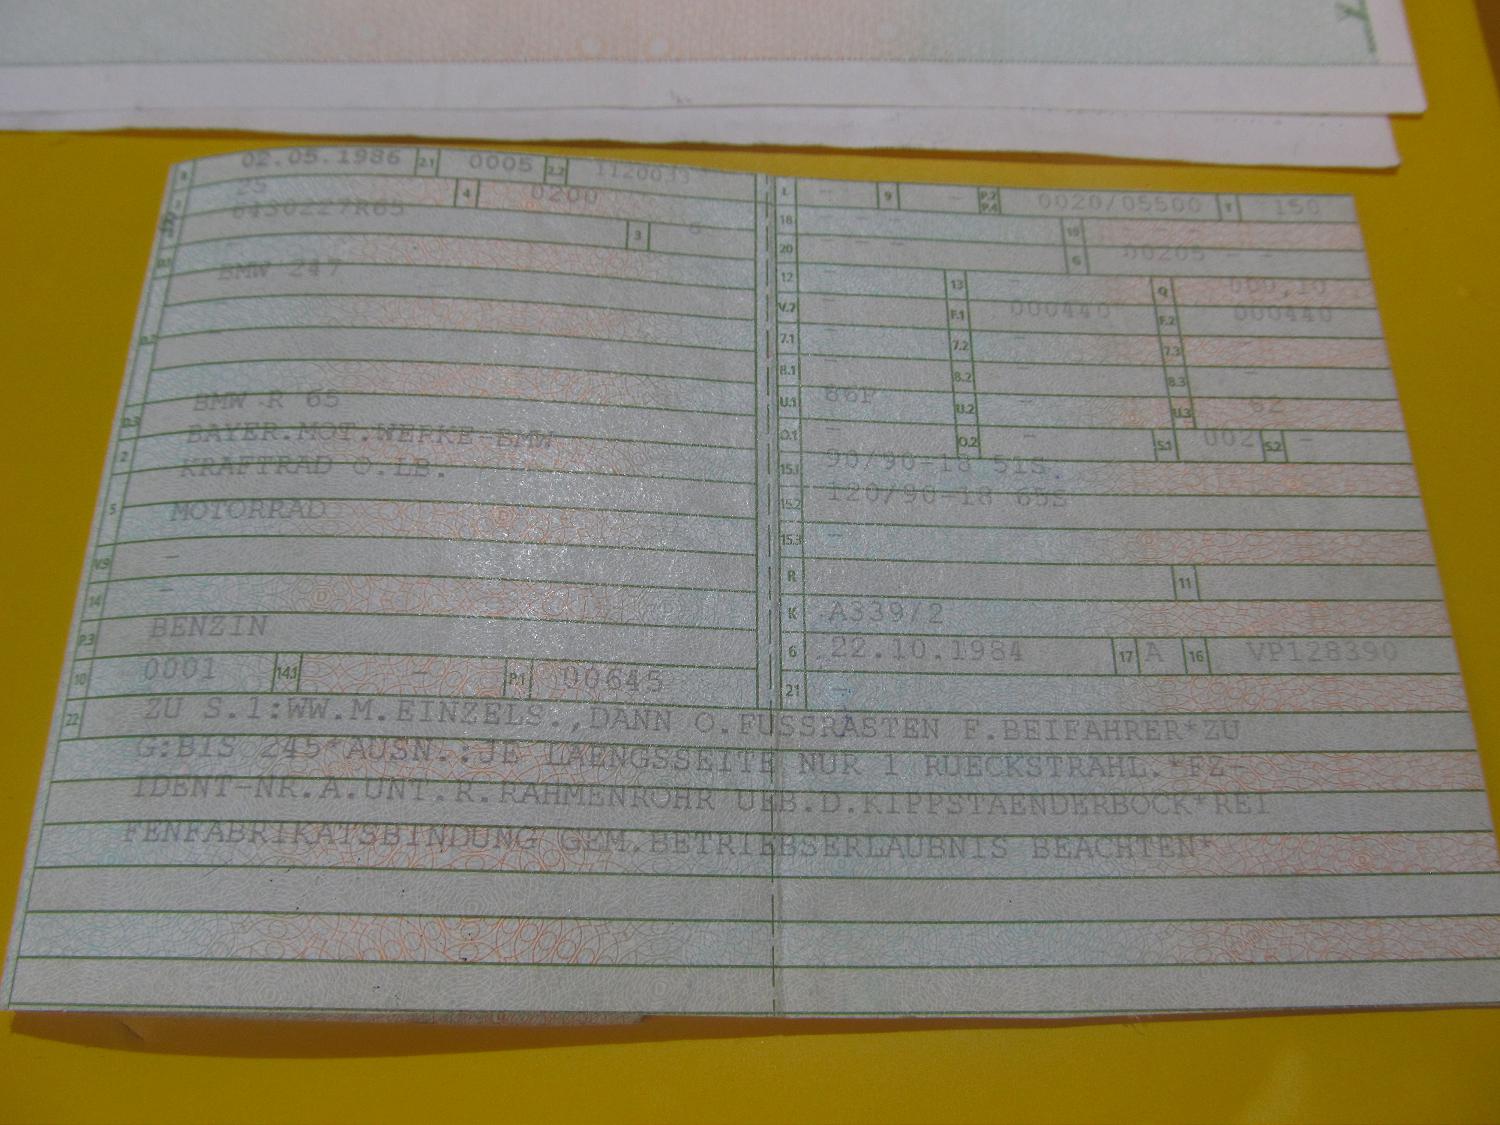 B 02.05.1986 2.1 0005 2.2
4 0200
6430227R65 3 6
D.1 -
BMW 247
D.2
BMW R 65
D.3 BAYER.MOT.WERKE-BMW
2 KRAFTRAD O.LB.
5 MOTORRAD
V.9 -
14 -
P.3 BENZIN
10 0001 14.1 - P.1 00645
L - 9 - P.2 P.4 0020/05500 T 150
18 - - - 19 - - -
20 - - - G 00205 - -
12 - 13 - Q 000,10
V.7 - F.1 000440 F.2 000440
7.1 - 7.2 - 7.3 -
8.1 - 8.2 - 8.3 -
U.1 86P U.2 - U.3 82
O.1 - O.2 - S.1 002 S.2 -
15.1 90/90-18 51S
15.2 120/90-18 65S
15.3 -
R 11
K A339/2
6 22.10.1984 17 A 16 VP128390
21 -
22 ZU S.1:WW.M.EINZELS.,DANN O.FUSSRASTEN F.BEIFAHRER*ZU
G:BIS 245*AUSN.:JE LAENGSSEITE NUR 1 RUECKSTRAHL.*FZ-
IDENT-NR.A.UNT.R.RAHMENROHR UEB.D.KIPPSTAENDERBOCK*REI
FENFABRIKATSBINDUNG GEM.BETRIEBSERLAUBNIS BEACHTEN*